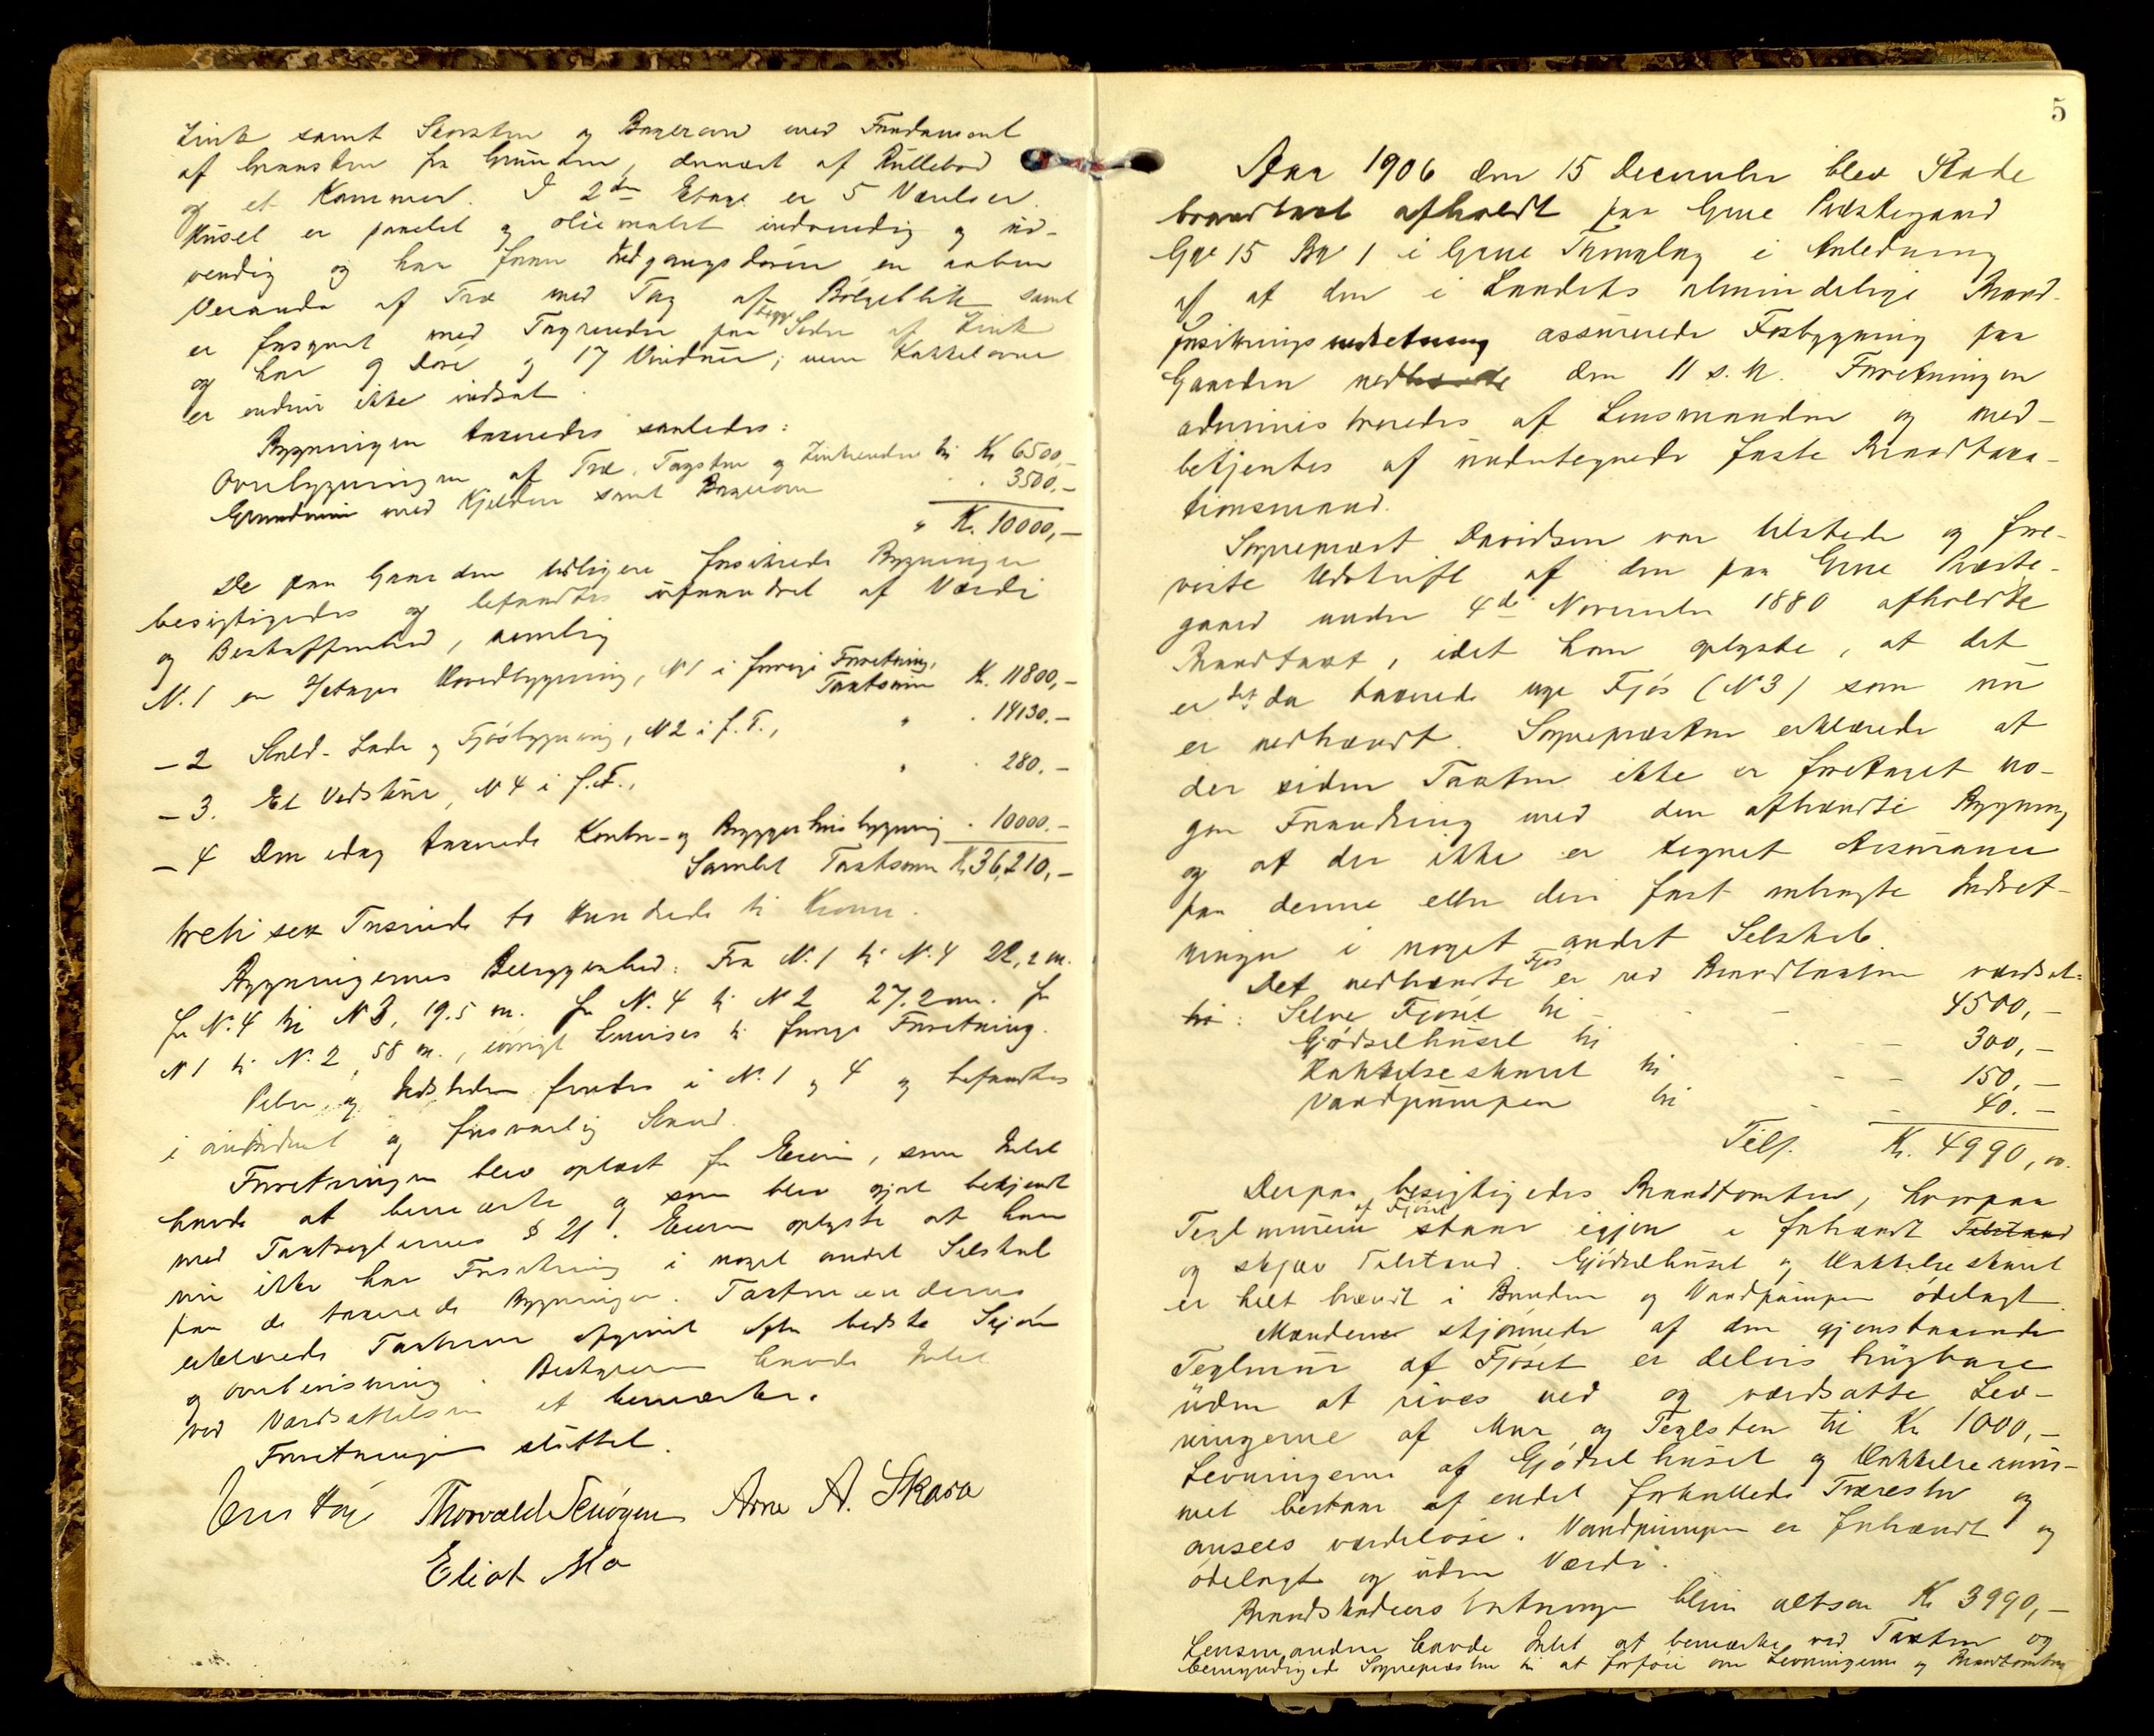 Zink samt Skorsten og Bagerovn med Fundament
af Graasten fra Grunden, dernæst af Rullebod
og et Kammer. I 2den Etage er 5 Værelser.
Huset er panelet og oliemalet indvendig og ud-
vendig og har foran Indgangsdøren en aaben
Veranda af Træ med Tag af Bølgeblik samt
er forsynet med Tagrender paa begge Sider af Zink
og har 9 Døre og 17 Vinduer; men Kakkelovne
er endnu ikke indsat.
Bygningen taxeredes saaledes:
Overbygningen af Træ, Tagsten og Zinkrender til Kr 6500,-
Grundmur med Kjelder samt Bagerovn " . 3500.-
" Kr. 10000,-
De paa Gaarden tidligere forsikrede Bygninger
besigtigedes og befandtes uforandret af Værdi
og Beskaffenhed, nemlig
N. 1 en 2 etages Hovedbygning, N 1 i forrige Forretning, Taxtsum Kr. 11800,-
- 2 Stald- Lade og Fjøsbygning, N 2 i f. F., " . 14130.-
- 3. Et Vedskur, N 4 i f. F., " . 280.-
- 4 Den idag taxerede Kontor- og Bryggerhusbygning . 10000.-
Samlet Taxtsum Kr 36,210,-
treti sex Tusinde to Hundrede ti Kroner.
Bygningernes Beliggenhed: Fra N. 1 til N. 4 22,2 m.
fra N. 4 til N 3, 19.5 m. fra N. 4 til N 2 27.2 m. fra
N 1 til N. 2, 58 m., iøvrigt henvises til forrige Forretning.
Piber og Ildsteder findes i N. 1 og 4 og befandtes
i anordnet og forsvarlig Stand.
Forretningen blev oplæst for Eieren, som Intet
havde at bemærke og som blev gjort bekjendt
med Taxtreglernes § 21. Eieren oplyste at han
nu ikke har Forsikring i noget andet Selskab
paa de taxerede Bygninger. Taxtmændenes
erklærede Taxterne afgivet efter bedste Skjøn
og Overbevisning. Bestyreren havde Intet
ved Værdsættelsen at bemærke.
Forretningen sluttet.
Thorvald Arne A. Skara
Eliot Mo
5
Aar 1906 den 15 December blev Skade
brandtaxt afholdt paa Grue Præstegaard
Gne 15 Br 1 i Grue Thinglag i Anledning
af at den i Landets almindelige Brand-
forsikringsindretning assurerede Fjøsbygning paa
Gaarden nedbrændte den 11 s. M. Forretningen
administreredes af Lensmanden og med-
betjentes af undertegnede faste Brandtaxa-
tionsmænd.
Sogneprest Davidsen var tilstede og fore-
viste Udskrift af den paa Grue Præste-
gaard under 4de November 1880 afholdte
Brandtaxt, idet han oplyste, at det
er det da taxerede nye Fjøs (N 3) som nu
er nedbrændt. Sognepræsten erklærede at
der siden Taxten ikke er foretaget no-
gen Forandring med den afbrændte Bygning
og at der ikke er tegnet Assurance
paa denne eller den fast anbragte Indret-
ninger i noget andet Selskab.
Det nedbrændte Fjøs er ved Brandtaxten værdsat
til: Selve Fjøset til - - 4500,-
Gjødselhuset til . - 300,-
Hakkelseskuret til - - 150,-
Vandpumpen til - - 40.-
Tils. Kr. 4990,00.
Derpaa besigtigedes Brandtomten, hvorpaa
Teglmuren af Fjøset staar igjen i forbrændt Tilstand
og skjæv Tilstand. Gjødselhuset og Hakkelseskuret
er helt brændt i Bunden og Vandpumpen ødelagt.
Mændene skjønnede at den gjenstaaende
Teglmur af Fjøset er delvis brugbare
uden at rives ned og værdsatte Lev-
ningerne af Mur og Teglsten til Kr 1000,-
Levningerne af Gjødselhuset og Hakkelserum-
met bestaar af endel forkullede Trærester og
ansees værdeløse. Vandpumpen er forbrændt og
ødelagt og uden Værdi.
Brandskadeerstatningen bliver altsaa Kr 3990,-
Lensmanden havde Intet at bemærke ved Taxten og
bemyndigede Sognepræsten til at forføie over Levningerne og Brandtomten